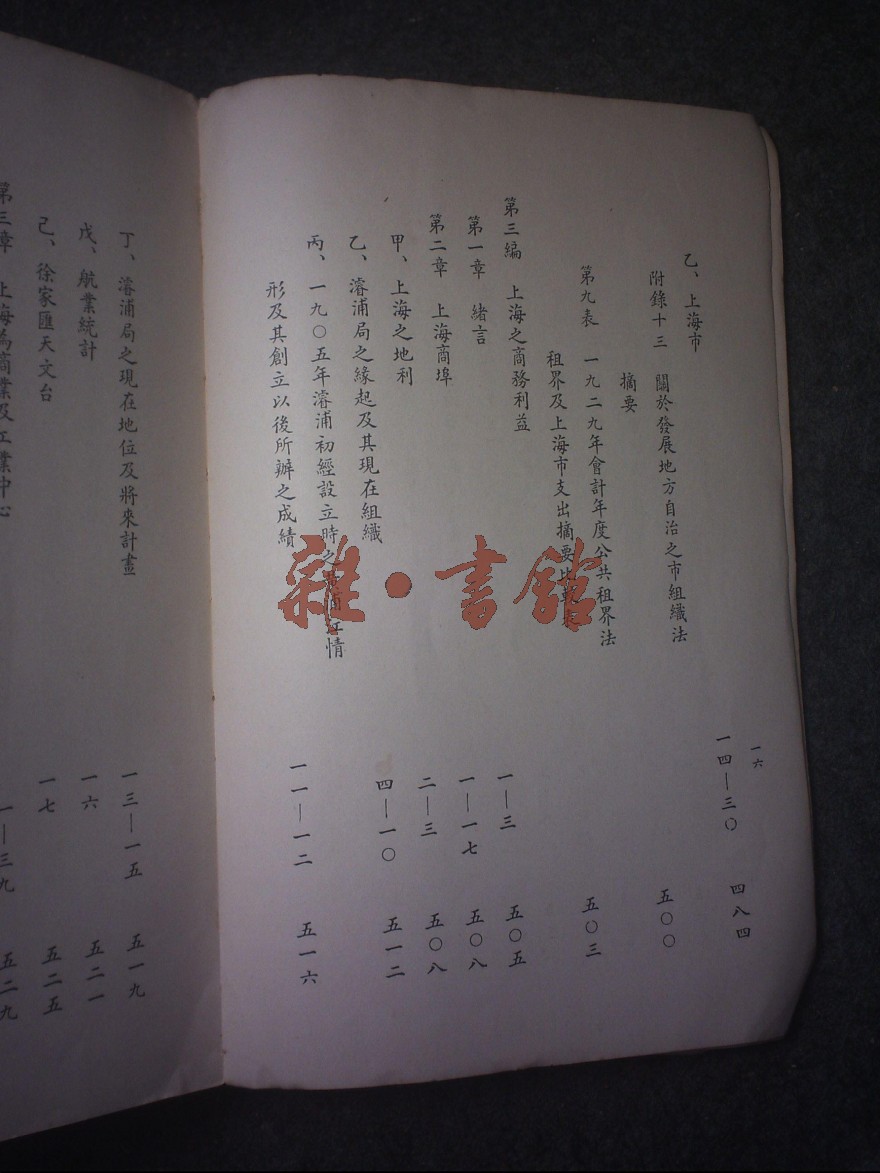 一六
乙、上海市 一四—三〇 四八四
附錄十三 關於發展地方自治之市組織法
摘要 五〇〇
第九表 一九二九年會計年度公共租界法
租界及上海市支出摘要比較表 五〇三
第三編 上海之商務利益
第一章 緒言 一—三 五〇五
第二章 上海商埠 一—一七 五〇八
甲、上海之地利 二—三 五〇八
乙、濬浦局之緣起及其現在組織 四—一〇 五一二
丙、一九〇五年濬浦初經設立時之江情
形及其創立以後所辦之成績 一一—一二 五一六
丁、濬浦局之現在地位及將來計畫 一三—一五 五一九
戊、航業統計 一六 五二一
己、徐家匯天文台 一七 五二五
第三章 上海為商業及工業中心 一—三九 五二九
雜·書館